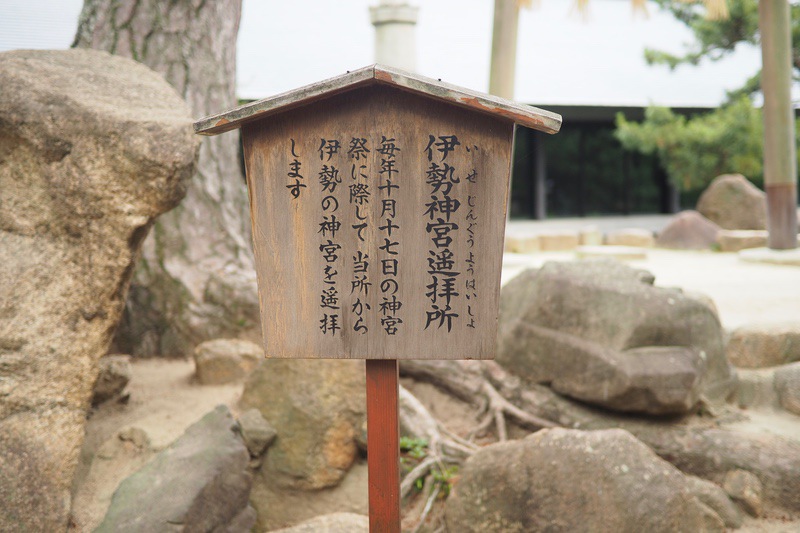 いせじんぐうようはいしょ
伊勢神宮遥拝所
毎年十月十七日の神宮
祭に際して当所から
伊勢の神宮を遥拝
します